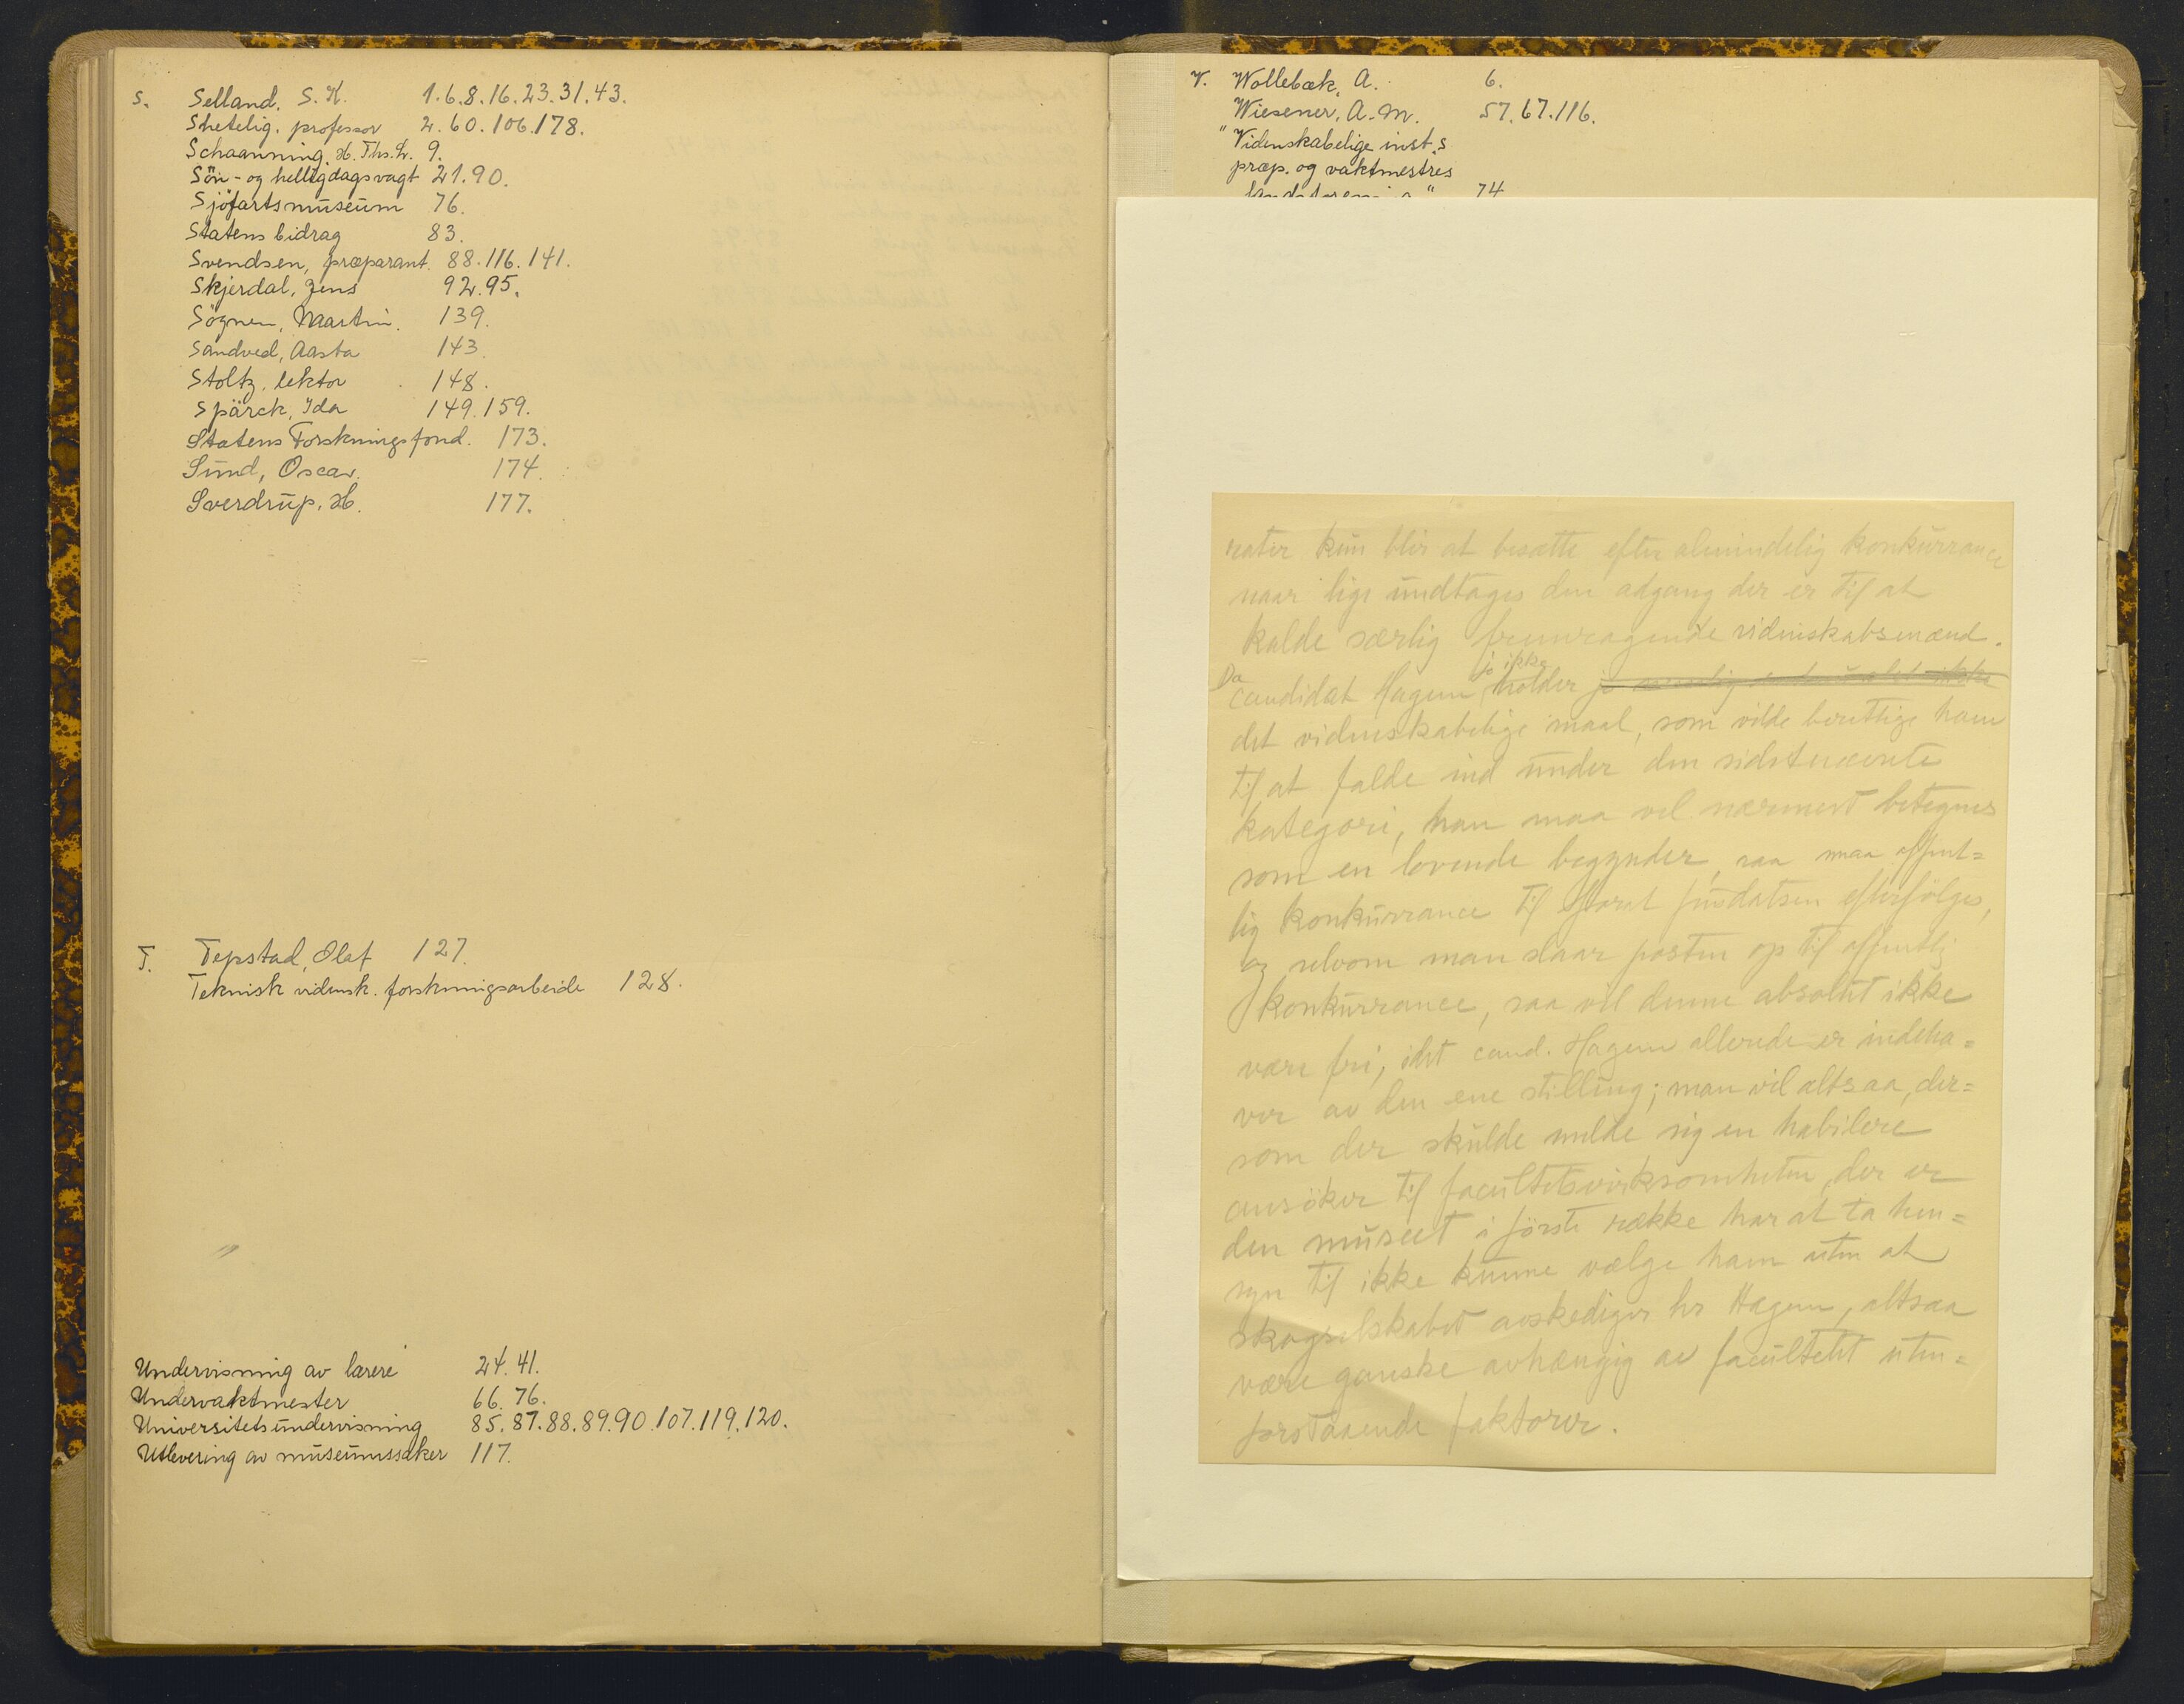 S. Selland. S. K. 1.6.8.16.23.31.43.
Shetelig. professor 2.60.106.178.
Schaanning. H. Ths. L. 9.
Sön- og helligdagsvagt 21.90.
Sjöfartsmuseum 76.
Statens bidrag 83.
Svendsen, præparant. 88.116.141.
Skjerdal, Jens 92.95.
Sögnen, Martin. 139.
Sandved, Aasta 143.
Stoltz. lektor 148.
Spärck, Ida 149.159.
Statens Forskningsfond. 173.
Sund, Oscar. 174.
Sverdrup. H. 177.
T. Tepstad, Olaf 127.
Teknisk vidensk. forskningsarbeide 128.
Undervisning av lærere 24.41.
Undervaktmester 66.76.
Universitetsundervisning 85.87.88.89.90.107.119.120.
Utlevering av museumssaker 117.
V. Wollebæk, A. 6.
Wiesener, A. M. 57.67.116.
"Videnskabelige inst.s
præp. og vaktmestres
landsforening" 74
nater kun blir at besætte efter almindelig konkurrance
naar lige undtages den adgang der er til at
kalde særlig fremragende videnskabsmænd.
Da candidat Hagem jo ikke holder
det videnskabelige maal, som vilde berettige ham
til at falde ind under den sidstnævnte
kategori, han maa vel nærmest betegnes
som en lovende begynder, saa maa offent=
lig konkurrance til fundatsen efterfölges,
og selvom man slaar posten op til offentlig
konkurrance, saa vil denne absolut ikke
være fri, idet cand. Hagem allerede er indeha=
ver av den ene stilling; man vil altsaa, der=
som der skulde melde sig en habilere
ansöker til facultetsvirksomheten, der er
den museet i förste række har at ta hen=
syn til ikke kunne vælge ham uten at
skogselskabet avskediger hr Hagem, altsaa
være ganske avhængig av facultetet uten=
forstaaende faktorer.